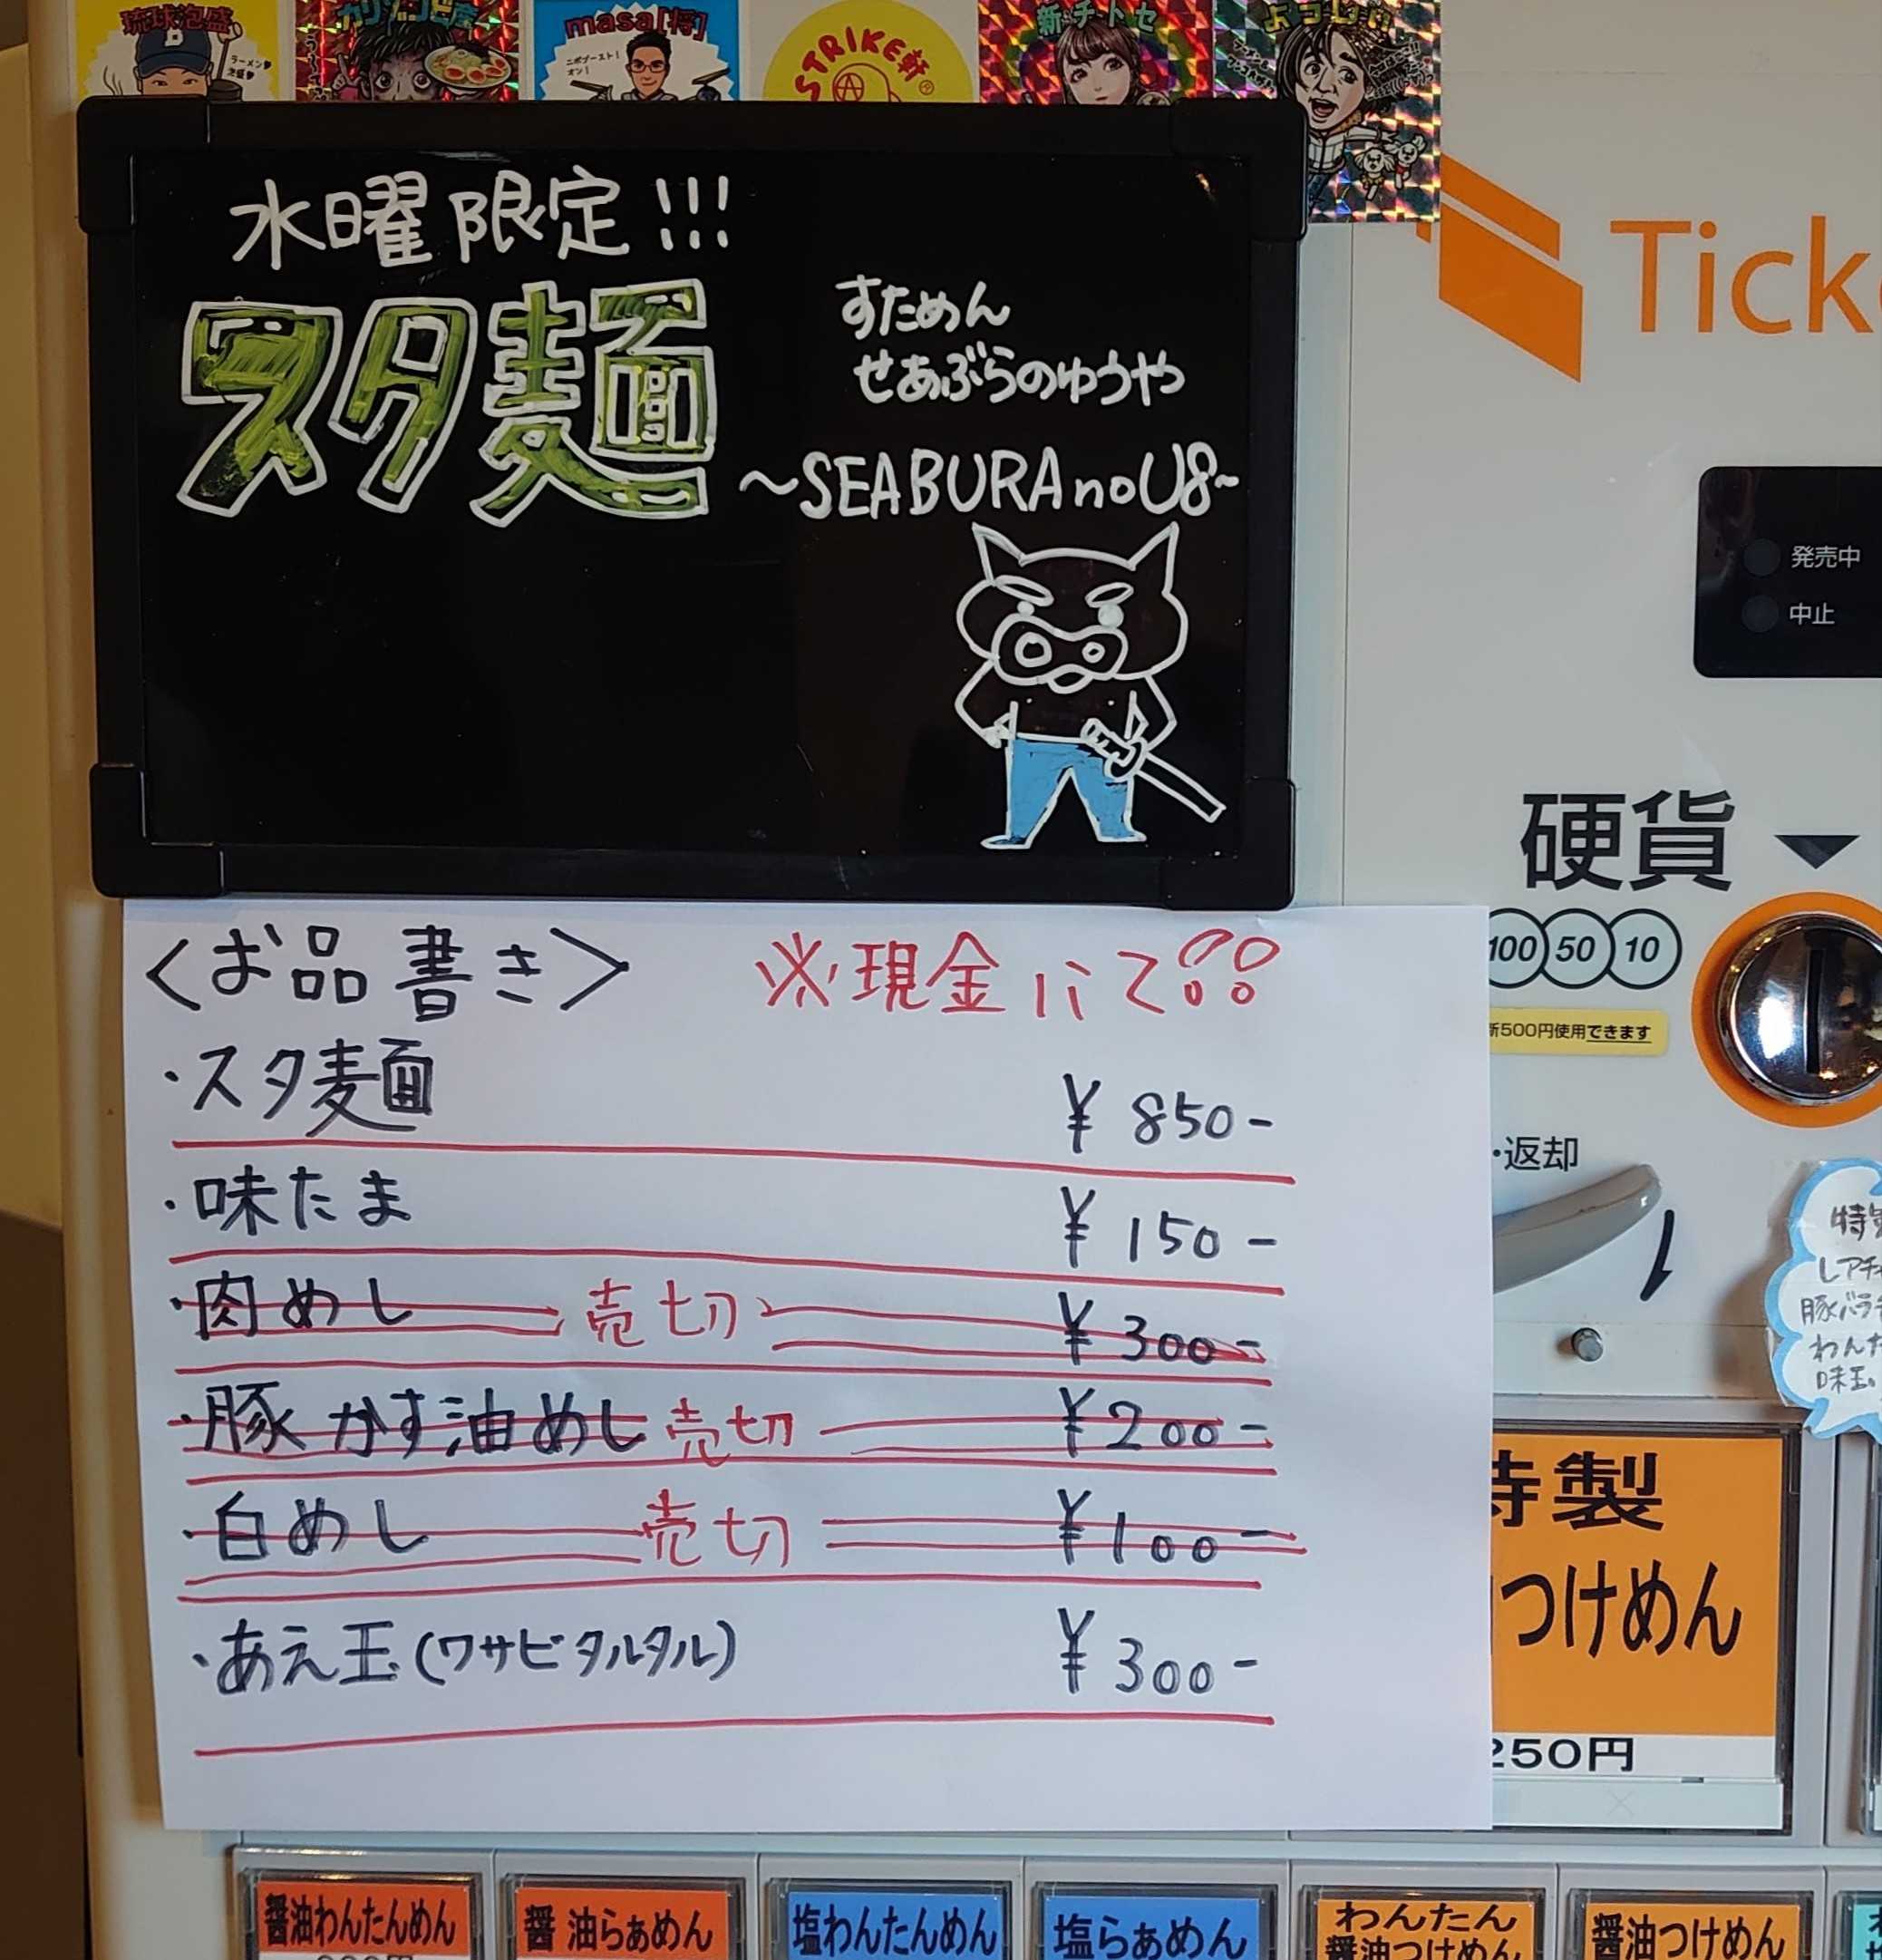 琉球泡盛
masa[将]
STRIKE軒
新チトセ
水曜限定!!!
スタ麺
すためん
せあぶらのゆうや
～SEABURA no U8～
Tick
発売中
中止
硬貨
100 50 10
新500円使用できます
・返却
<お品書き> ※現金にて!!
・スタ麺 ¥850-
・味たま ¥150-
・肉めし 売切 ¥300-
・豚かす油めし 売切 ¥200-
・白めし 売切 ¥100-
・あえ玉(ワサビタルタル) ¥300-
豚バラ
味玉。
特製
つけめん
250円
醤油わんたんめん
醤油らぁめん
塩わんたんめん
塩らぁめん
わんたん
醤油つけめん
醤油つけめん